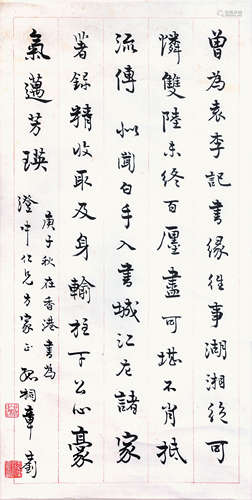 曾為袁李記書緣往事湖湘絕可
憐雙陸未終百廛盡可堪不肖抵
流傳 似聞白手入書城江左諸家
署錄精收取及身輸柱下公心豪
氣邁芳瑛
庚子秋在香港書為
澄中仁兄方家正 孤桐章士釗